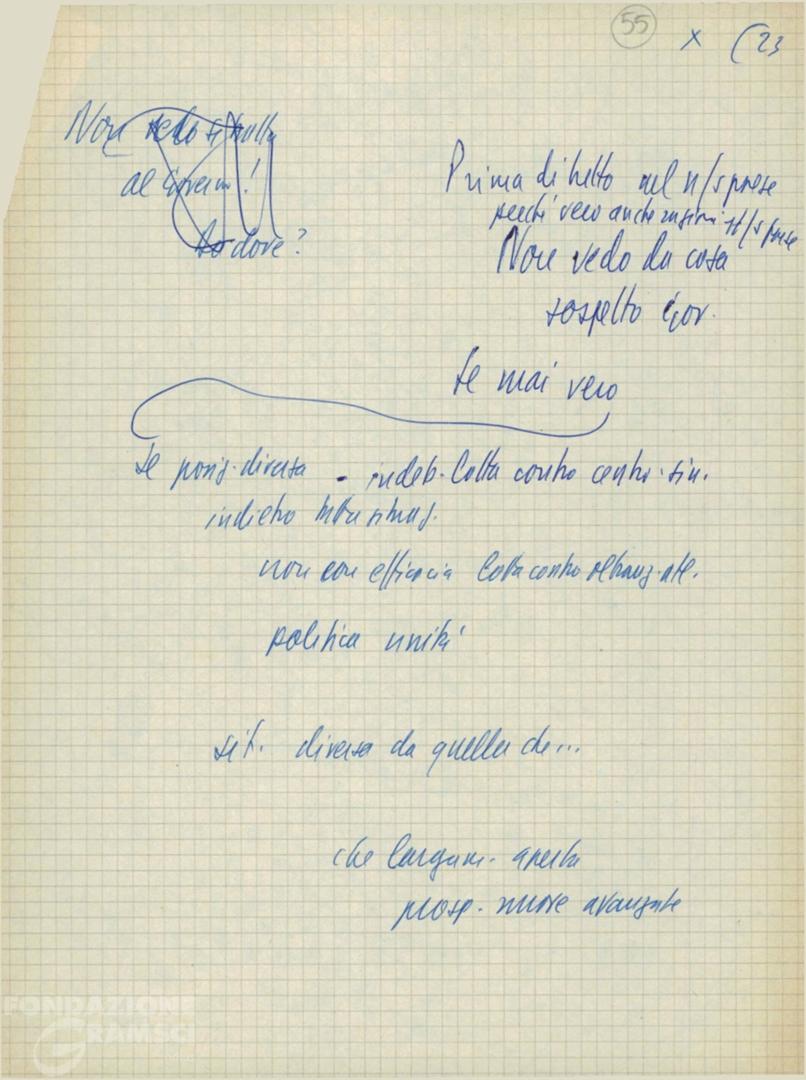 55 x (23
Non vedo si nulla
al Governo!
dove?
Prima di tutto nel n/s paese
perché vero anche n/s paese
Non vedo da cosa
sospetto Gov.
Se mai vero
Se posiz. diversa - indeb. lotta contro centro-sin.
indietro
non con efficacia lotta contro oltranz. atl.
politica unità
sit. diversa da quella che...
che largam. aperta
prosp. nuove avanzate
FONDAZIONE
GRAMSCI